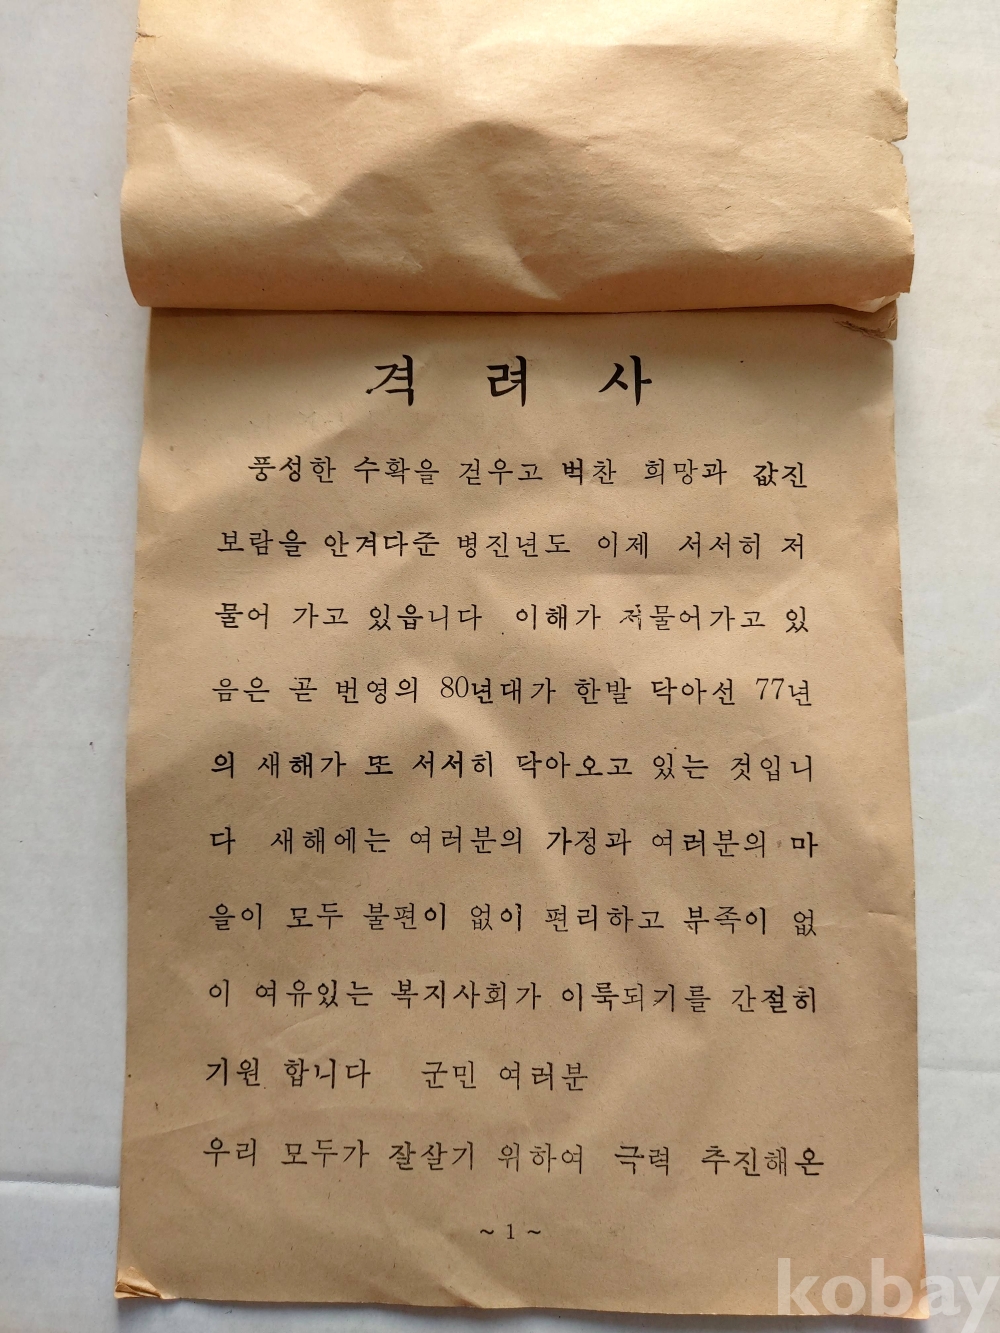 격 려 사
풍성한 수확을 걷우고 벅찬 희망과 값진
보람을 안겨다준 병진년도 이제 서서히 저
물어 가고 있읍니다 이해가 저물어가고 있
음은 곧 번영의 80년대가 한발 닥아선 77년
의 새해가 또 서서히 닥아오고 있는 것입니
다 새해에는 여러분의 가정과 여러분의 마
을이 모두 불편이 없이 편리하고 부족이 없
이 여유있는 복지사회가 이룩되기를 간절히
기원 합니다 군민 여러분
우리 모두가 잘살기 위하여 극력 추진해온
~ 1 ~
kobay